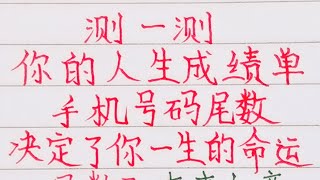 测一测
你的人生成绩单
手机号码尾数
决定了你一生的命运